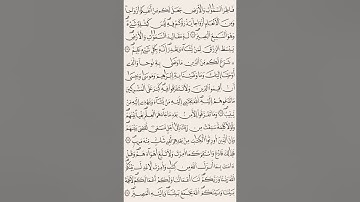 فَاطِرُ السَّمَٰوَٰتِ وَالْأَرْضِ جَعَلَ لَكُم مِّنْ أَنفُسِكُمْ أَزْوَٰجًا
وَمِنَ الْأَنْعَٰمِ أَزْوَٰجًا يَذْرَؤُكُمْ فِيهِ لَيْسَ كَمِثْلِهِ شَيْءٌ
وَهُوَ السَّمِيعُ الْبَصِيرُ ۝ لَهُ مَقَالِيدُ السَّمَٰوَٰتِ وَالْأَرْضِ
يَبْسُطُ الرِّزْقَ لِمَن يَشَاءُ وَيَقْدِرُ إِنَّهُ بِكُلِّ شَيْءٍ عَلِيمٌ ۝
شَرَعَ لَكُم مِّنَ الدِّينِ مَا وَصَّىٰ بِهِ نُوحًا وَالَّذِي
أَوْحَيْنَا إِلَيْكَ وَمَا وَصَّيْنَا بِهِ إِبْرَٰهِيمَ وَمُوسَىٰ وَعِيسَىٰ
أَنْ أَقِيمُوا الدِّينَ وَلَا تَتَفَرَّقُوا فِيهِ كَبُرَ عَلَى الْمُشْرِكِينَ
مَا تَدْعُوهُمْ إِلَيْهِ اللَّهُ يَجْتَبِي إِلَيْهِ مَن يَشَاءُ وَيَهْدِي إِلَيْهِ مَن
يُنِيبُ ۝ وَمَا تَفَرَّقُوا إِلَّا مِن بَعْدِ مَا جَاءَهُمُ الْعِلْمُ بَغْيًا بَيْنَهُمْ
وَلَوْلَا كَلِمَةٌ سَبَقَتْ مِن رَّبِّكَ إِلَىٰ أَجَلٍ مُّسَمًّى لَّقُضِيَ بَيْنَهُمْ
وَإِنَّ الَّذِينَ أُورِثُوا الْكِتَٰبَ مِن بَعْدِهِمْ لَفِي شَكٍّ مِّنْهُ مُرِيبٍ ۝
فَلِذَٰلِكَ فَادْعُ وَاسْتَقِمْ كَمَا أُمِرْتَ وَلَا تَتَّبِعْ أَهْوَاءَهُمْ وَقُلْ
ءَامَنتُ بِمَا أَنزَلَ اللَّهُ مِن كِتَٰبٍ وَأُمِرْتُ لِأَعْدِلَ بَيْنَكُمُ
اللَّهُ رَبُّنَا وَرَبُّكُمْ لَنَا أَعْمَٰلُنَا وَلَكُمْ أَعْمَٰلُكُمْ لَا حُجَّةَ
بَيْنَنَا وَبَيْنَكُمُ اللَّهُ يَجْمَعُ بَيْنَنَا وَإِلَيْهِ الْمَصِيرُ ۝